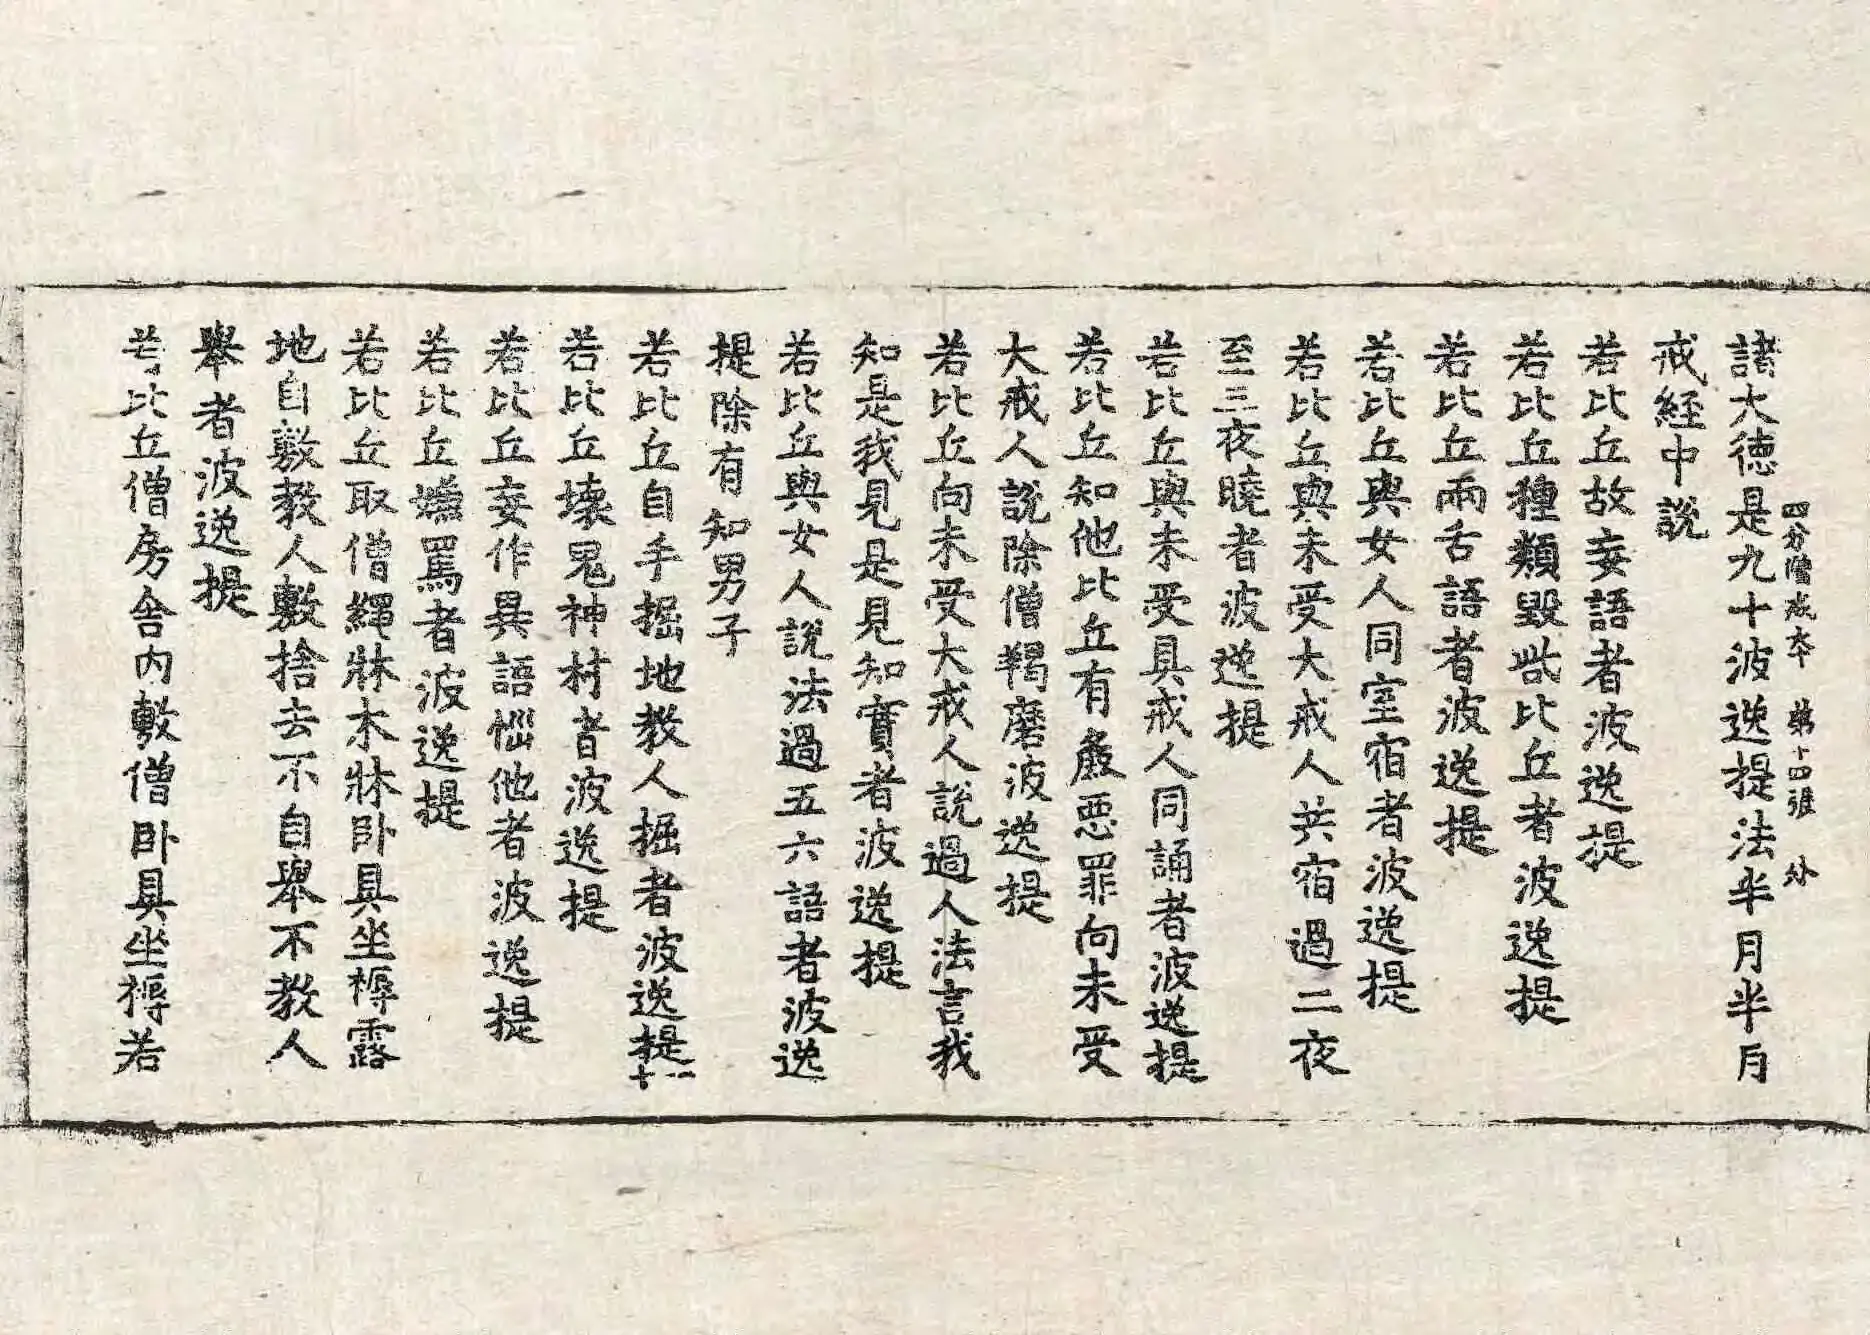 四分僧戒本 第十四張 外
諸大德是九十波逸提法半月半月
戒經中說
若比丘故妄語者波逸提
若比丘種類毀呰比丘者波逸提
若比丘兩舌語者波逸提
若比丘與女人同室宿者波逸提
若比丘與未受大戒人共宿過二夜
至三夜曉者波逸提
若比丘與未受具戒人同誦者波逸提
若比丘知他比丘有麁惡罪向未受
大戒人說除僧羯磨波逸提
若比丘向未受大戒人說過人法言我
知是我見是見知實者波逸提
若比丘與女人說法過五六語者波逸
提除有知男子
若比丘自手掘地教人掘者波逸提十一
若比丘壞鬼神村者波逸提
若比丘妄作異語惱他者波逸提
若比丘嫌罵者波逸提
若比丘取僧繩牀木牀卧具坐褥露
地自敷教人敷捨去不自舉不教人
舉者波逸提
若比丘僧房舍內敷僧卧具坐褥若